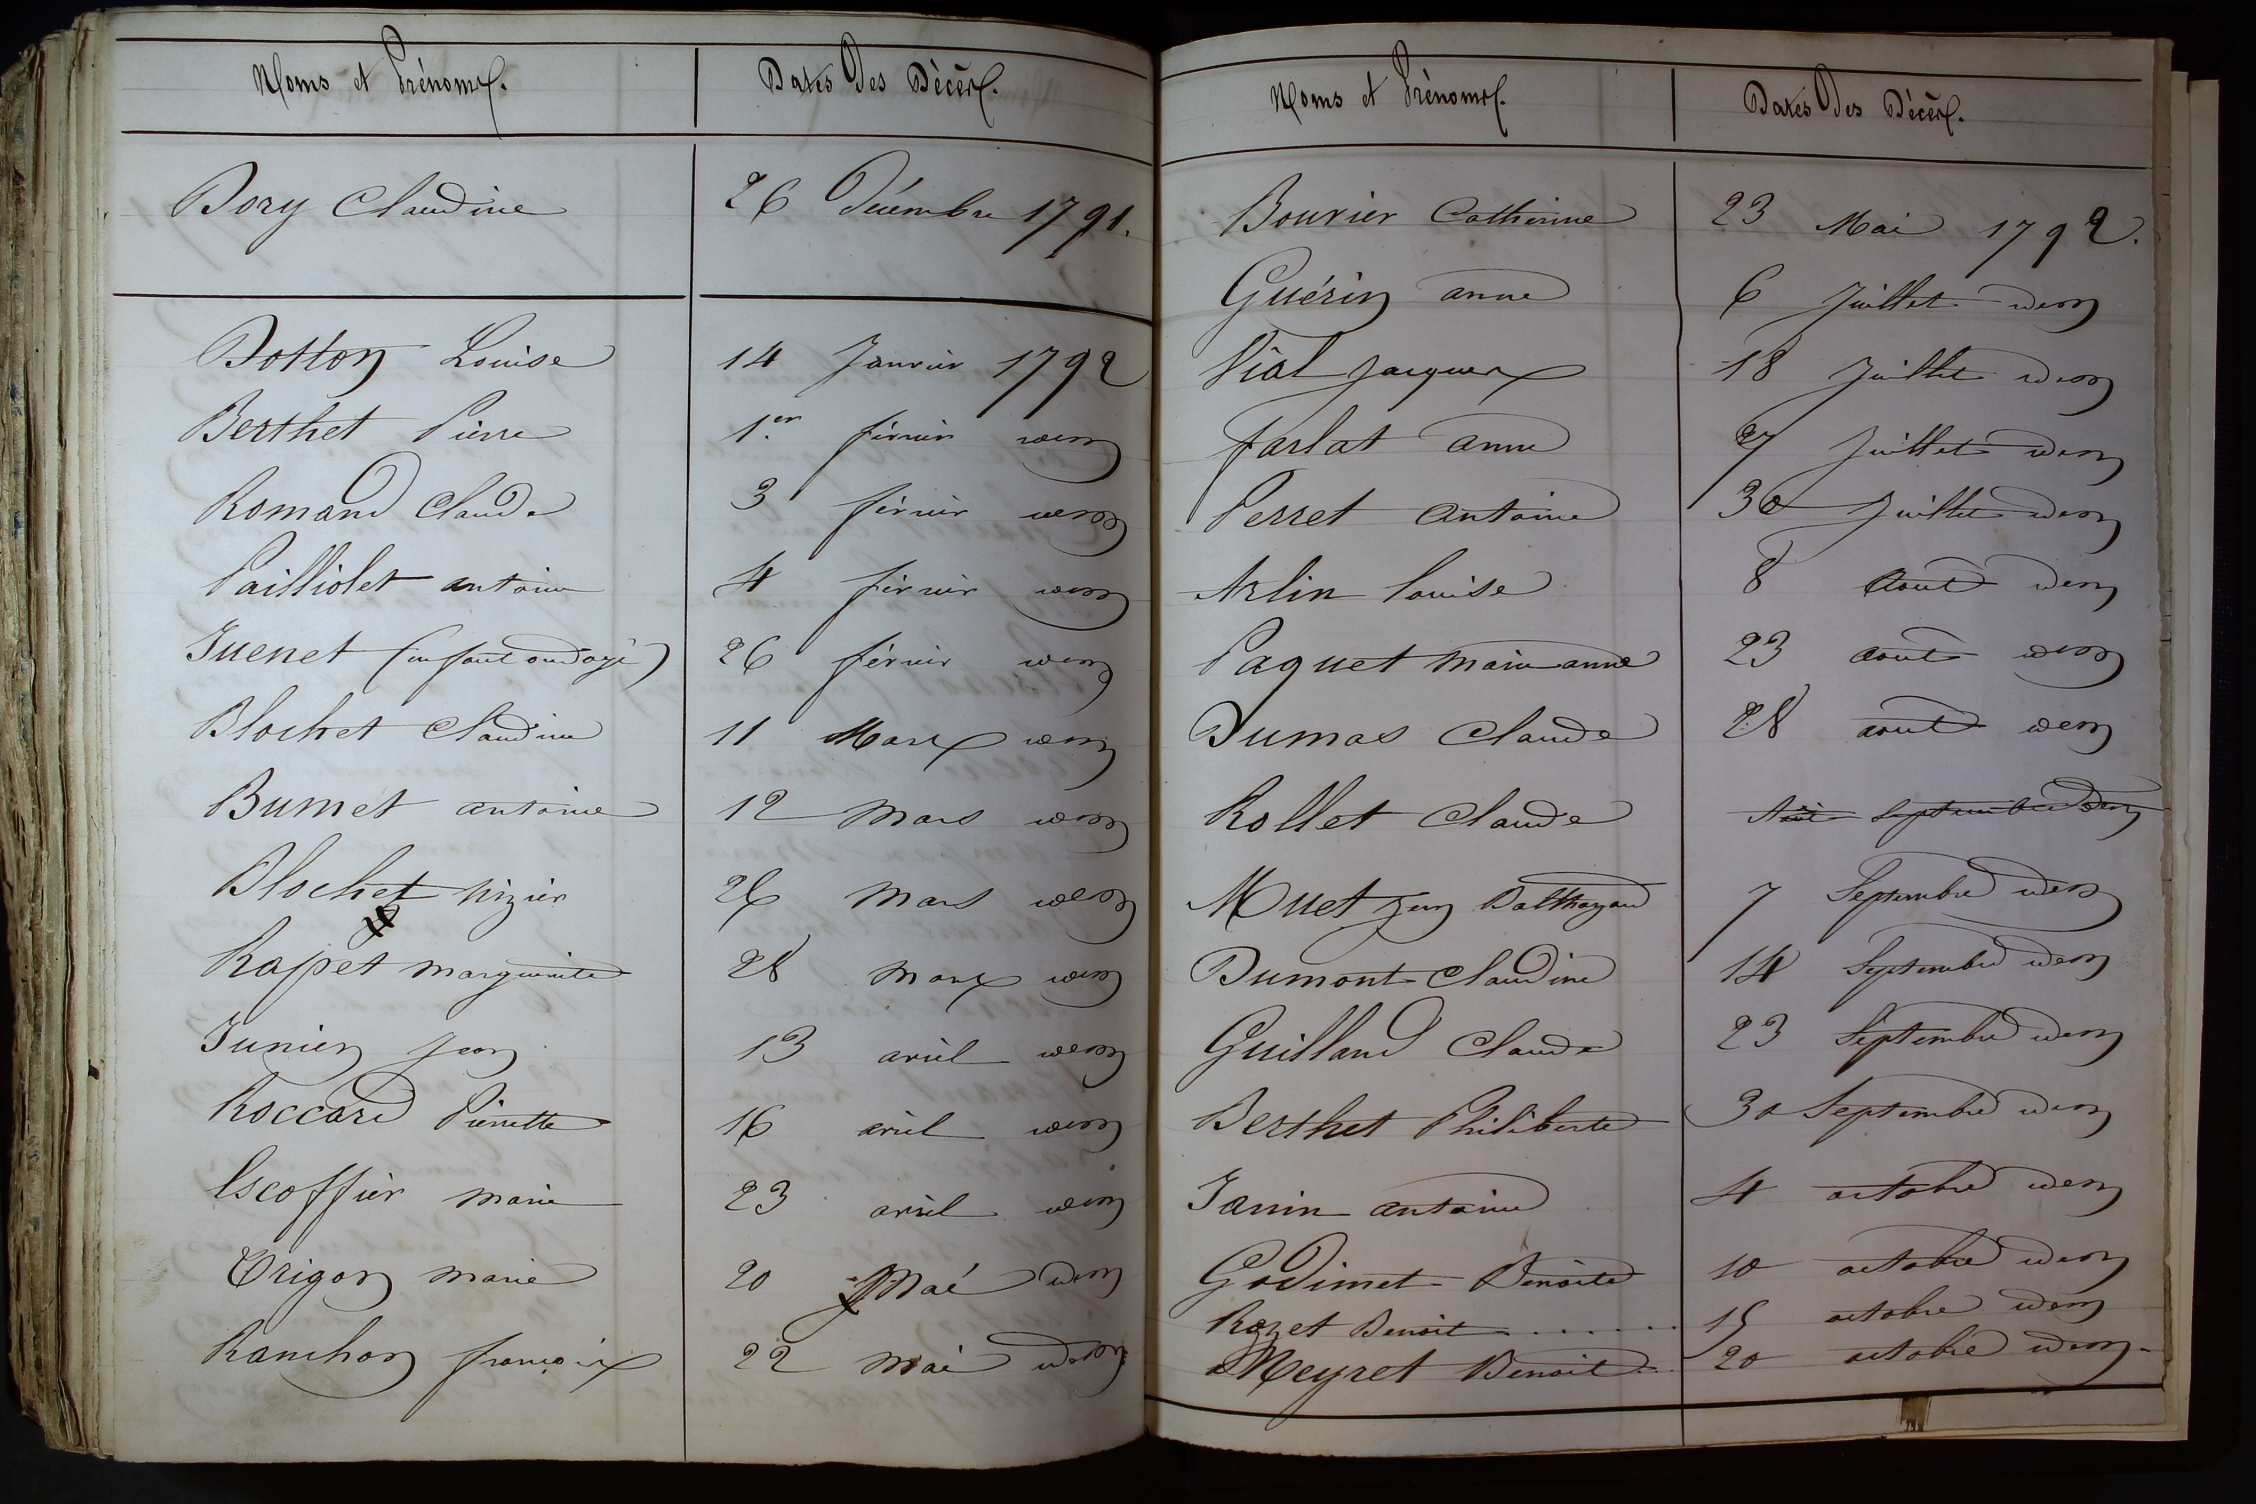 Noms et Prénoms.
Dates Des Décès.
Dory Claudine 26 Décembre 1791.
Dotton Louise 14 Janvier 1792
Berthet Pierre 1.er février idem
Romand Claude 3 février idem
Pailliolet antoine 4 février idem
Juenet (enfant ondoyé) 26 février idem
Blochet Claudine 11 Mars idem
Bumet antoine 12 Mars idem
Blochet nizier 26 Mars idem
Rapet marguerite 28 Mars idem
Junien Jean 13 avril idem
Roccard Pierrette 16 avril idem
Escoffier marie 23 avril idem
Trigon marie 20 Mai idem
Ranchon françois 22 Mai idem
Noms et Prénoms.
Dates Des Décès.
Bouvier Catherine 23 Mai 1792.
Guérin anne 6 Juillet idem
Vial Jacques 18 Juillet idem
farlat anne 27 Juillet idem
Perret antoine 30 Juillet idem
Arlin louise 8 aout idem
Paquet marie anne 23 aout idem
Dumas Claude 28 aout idem
Rollet Claude septembre idem
Muet Jean Balthazard 7 Septembre idem
Dumont Claudine 14 Septembre idem
Guilland Claude 23 Septembre idem
Berthet Philiberte 30 Septembre idem
Janin antoine 4 octobre idem
Godimet Benoite 10 octobre idem
Rozet Benoit ...... 15 octobre idem
Meyret Benoit .. 20 octobre idem